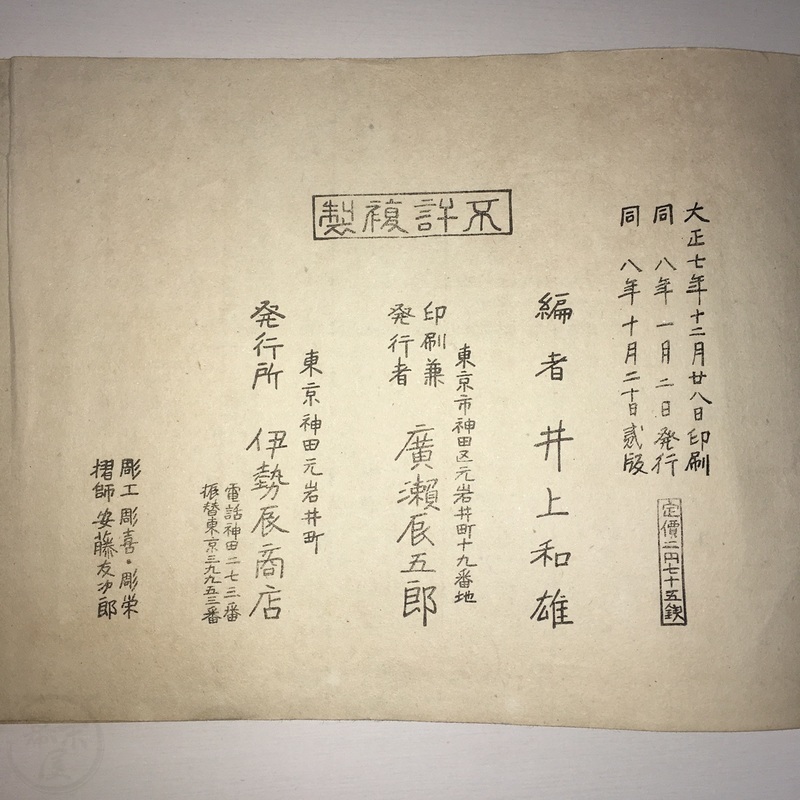 大正七年十二月廿八日印刷
同 八年 一月 二 日 発行
同 八年 十月二十日 貳版
定價二円七十五銭
不許複製
編者 井上和雄
東京市神田区元岩井町十九番地
印刷兼
発行者 廣瀬辰五郎
東京神田元岩井町
発行所 伊勢辰商店
電話神田二七三番
振替東京三九九五三番
彫工 彫喜・彫栄
摺師 安藤友次郎